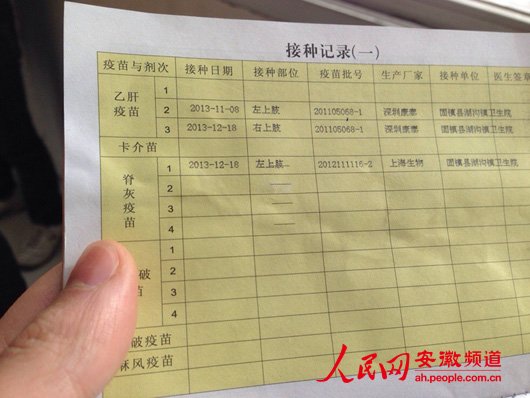 接种记录(一)
疫苗与剂次 接种日期 接种部位 疫苗批号 生产厂家 接种单位 医生签章
乙肝疫苗 1
2 2013-11-08 左上肢 201105068-1 深圳康泰 固镇县湖沟镇卫生院
3 2013-12-18 右上肢 201105068-1 深圳康泰 固镇县湖沟镇卫生院
卡介苗
脊灰疫苗 1 2013-12-18 左上肢 2012111116-2 上海生物 固镇县湖沟镇卫生院
2
3
4
破 1
苗 2
3
4
破疫苗
麻风疫苗
人民网 安徽频道
ah.people.com.cn